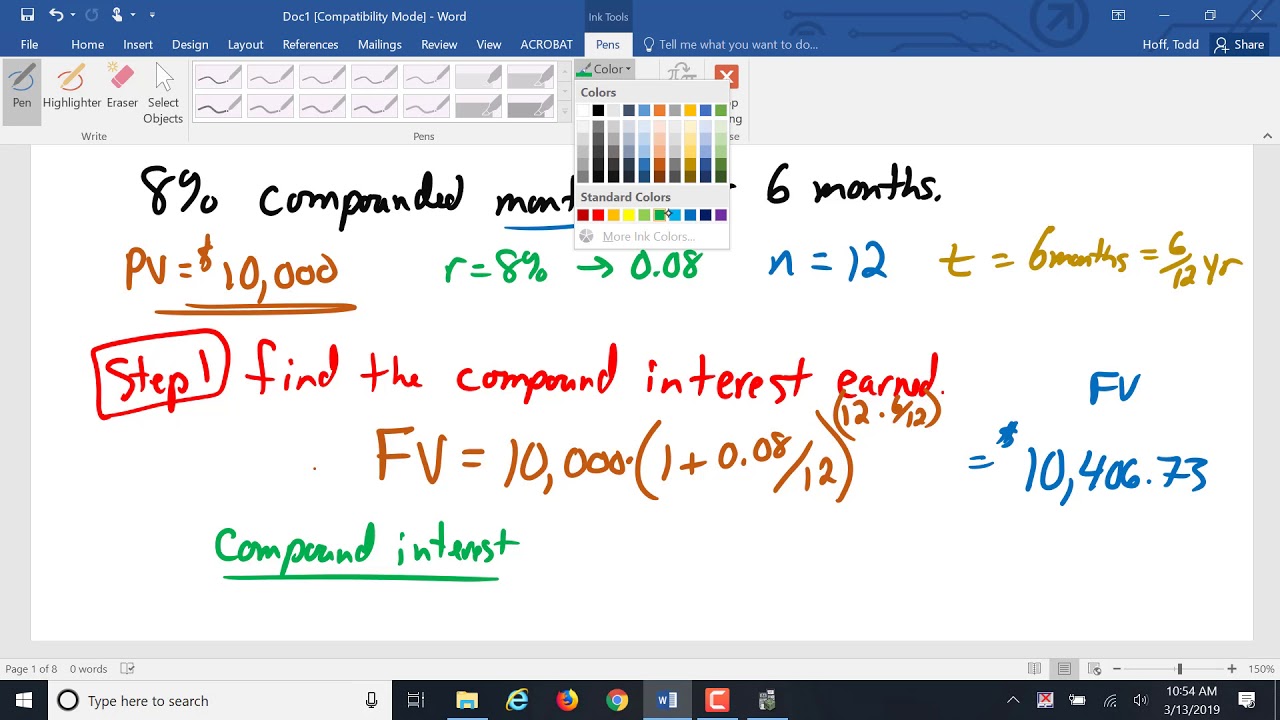 Doc1 [Compatibility Mode] - Word
Ink Tools
File Home Insert Design Layout References Mailings Review View ACROBAT Pens Tell me what you want to do... Hoff, Todd Share
Pen Highlighter Eraser Select Objects
Color
Write Pens
Colors
Standard Colors
More Ink Colors...
8% compounded 6 months.
PV = $10,000 r = 8% → 0.08 n = 12 t = 6 months = 6/12 yr
Step 1 find the compound interest earned.
FV
FV = 10,000·(1 + 0.08/12)^(12 · 6/12)
= $10,406.73
Compound interest
Page 1 of 8 0 words 150%
Type here to search
10:54 AM
3/13/2019